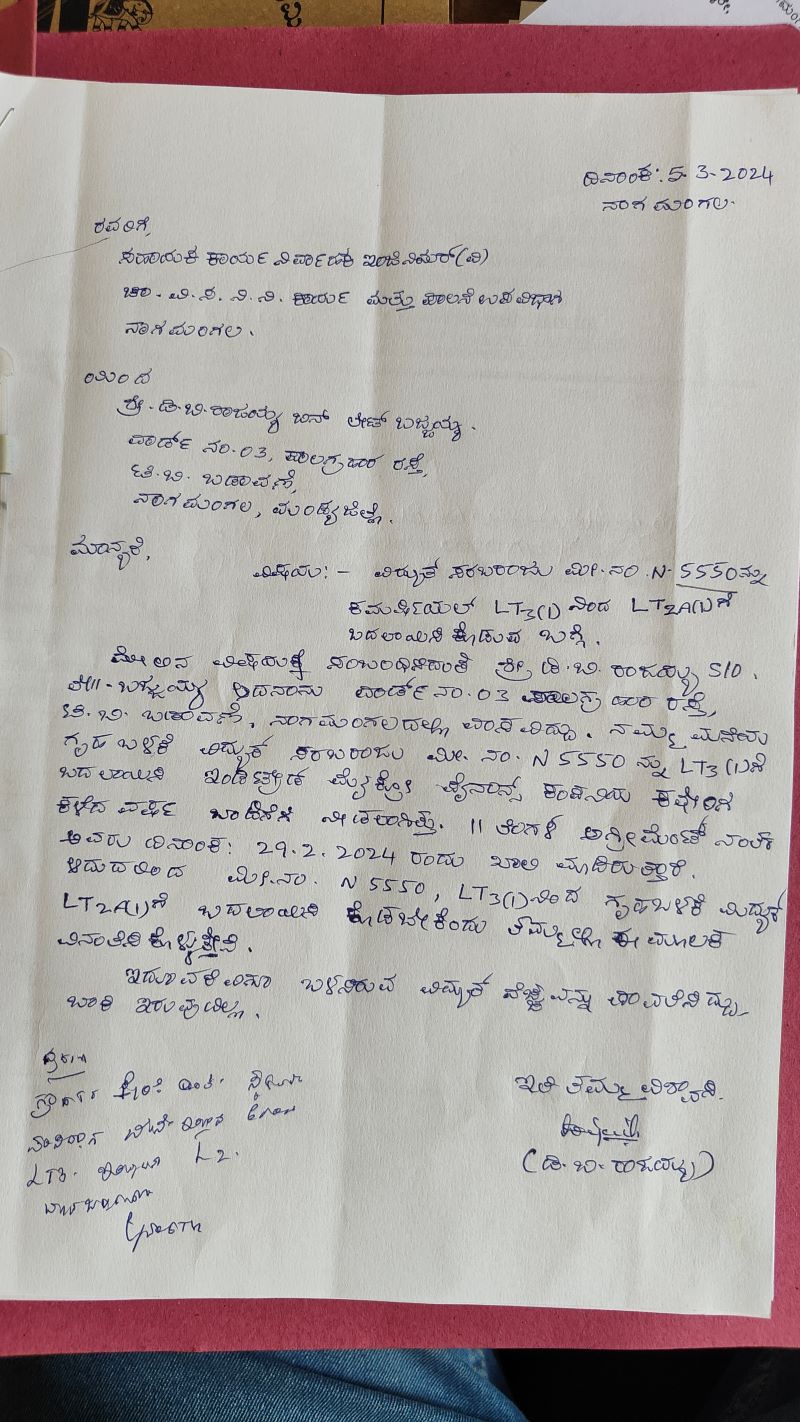 ದಿನಾಂಕ: 5-3-2024
ನಾಗಮಂಗಲ.
ರವರಿಗೆ,
ಸಹಾಯಕ ಕಾರ್ಯನಿರ್ವಾಹಕ ಇಂಜಿನಿಯರ್(ವಿ)
ಚಾ.ವಿ.ಸ.ನಿ.ನಿ. ಕಾರ್ಯ ಮತ್ತು ಪಾಲನೆ ಉಪವಿಭಾಗ
ನಾಗಮಂಗಲ.
ಯಿಂದ
ಶ್ರೀ.ಡಿ.ಬಿ.ರಾಜಯ್ಯ ಬಿನ್ ಲೇಟ್
ವಾರ್ಡ್ ನಂ.03, ರಸ್ತೆ,
ಟಿ.ಬಿ. ಬಡಾವಣೆ,
ನಾಗಮಂಗಲ, ಮಂಡ್ಯ ಜಿಲ್ಲೆ.
ಮಾನ್ಯರೆ,
ವಿಷಯ:- ವಿದ್ಯುತ್ ಸರಬರಾಜು ಮೀ.ನಂ.N-5550ನ್ನು
ಕಮರ್ಷಿಯಲ್ LT3(1) ನಿಂದ LT2A(1)ಗೆ
ಬದಲಾಯಿಸಿ ಕೊಡುವ ಬಗ್ಗೆ.
ಮೇಲಿನ ವಿಷಯಕ್ಕೆ ಸಂಬಂಧಿಸಿದಂತೆ ಶ್ರೀ ಡಿ.ಬಿ. ರಾಜಯ್ಯ S/O.
ಆದ ನಾನು ವಾರ್ಡ್ ನಂ.03 ರಸ್ತೆ,
ಟಿ.ಬಿ. ಬಡಾವಣೆ, ನಾಗಮಂಗಲದಲ್ಲಿ ವಾಸವಿದ್ದು. ನಮ್ಮ ಮನೆಯ
ಗೃಹ ಬಳಕೆ ವಿದ್ಯುತ್ ಸರಬರಾಜು ಮೀ. ನಂ. N 5550 ನ್ನು LT3(1)ಗೆ
ಬದಲಾಯಿಸಿ ಮೈಕ್ರೋ ಫೈನಾನ್ಸ್ ಕಂಪನಿಯ ಕಛೇರಿಗೆ
ಕಳೆದ ವರ್ಷ ಬಾಡಿಗೆಗೆ ನೀಡಲಾಗಿತ್ತು. 11 ತಿಂಗಳ ಅಗ್ರೀಮೆಂಟ್ ನಂತರ
ಅವರು ದಿನಾಂಕ: 29.2.2024 ರಂದು ಖಾಲಿ ಮಾಡಿರುತ್ತಾರೆ.
ಆದುದರಿಂದ ಮೀ.ನಂ. N 5550, LT3(1)ನಿಂದ ಗೃಹಬಳಕೆ ವಿದ್ಯುತ್
LT2A(1)ಗೆ ಬದಲಾಯಿಸಿ ಕೊಡಬೇಕೆಂದು ತಮ್ಮಲ್ಲಿ ಈ ಮೂಲಕ
ವಿನಂತಿಸಿ ಕೊಳ್ಳುತ್ತೇನೆ.
ಇದೂವರೆವಿಗೂ ಬಳಸಿರುವ ವಿದ್ಯುತ್ ವೆಚ್ಚವನ್ನು ಪಾವತಿಸಿದ್ದು,
ಬಾಕಿ ಇರುವುದಿಲ್ಲ.
ಇತಿ ತಮ್ಮ ವಿಶ್ವಾಸಿ.
(ಡಿ.ಬಿ. ರಾಜಯ್ಯ)
LT3. L2.